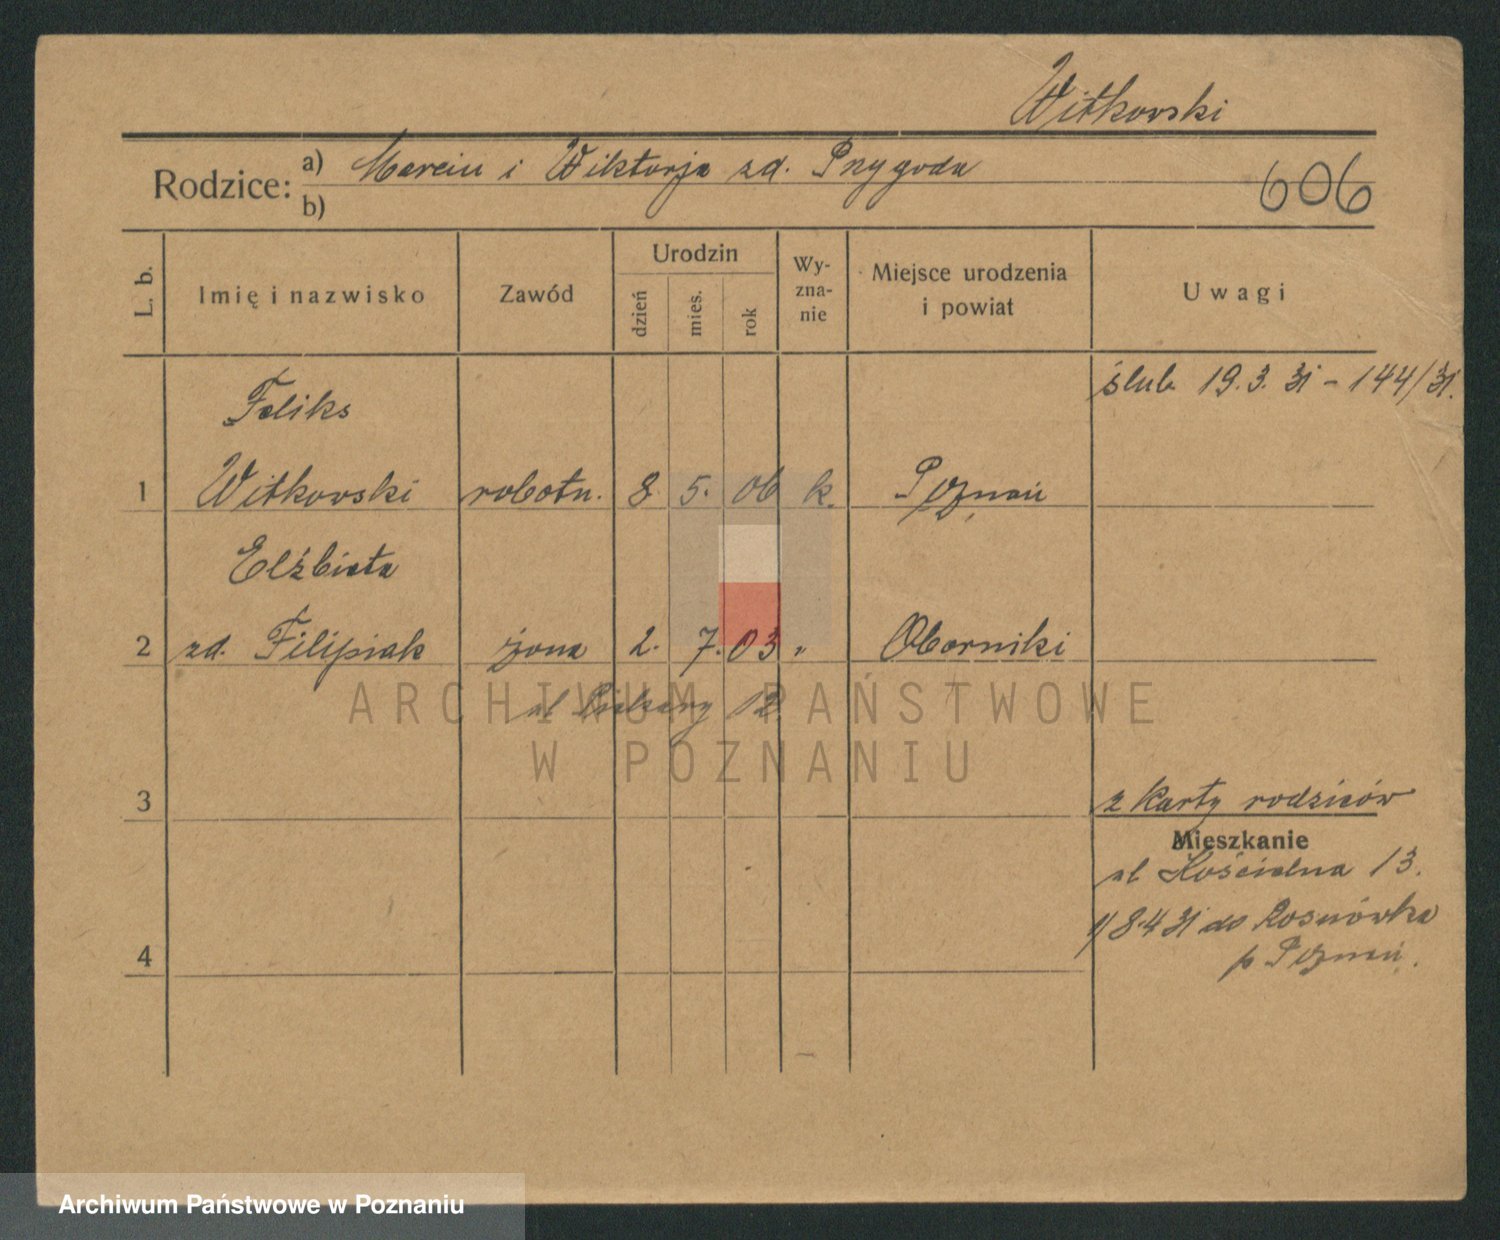 Witkowski
Rodzice: a) Marcin i Wiktorja zd. Przygoda
b)
606
L. b.
Imię i nazwisko
Zawód
Urodzin
dzień
mies.
rok
Wy-
zna-
nie
Miejsce urodzenia
i powiat
Uwagi
ślub 19.3.31 - 144/31.
Feliks
1 Witkowski robotn. 8 5. 06 k. Poznań
Elżbieta
2 zd. Filipiak żona 2. 7. 03 " Oborniki
ul 12
ARCHIWUM PAŃSTWOWE
W POZNANIU
3
z karty rodziców
Mieszkanie
ul Kościelna 13.
1/ 8.4 31 do Rosnówka
p Poznań.
4
Archiwum Państwowe w Poznaniu